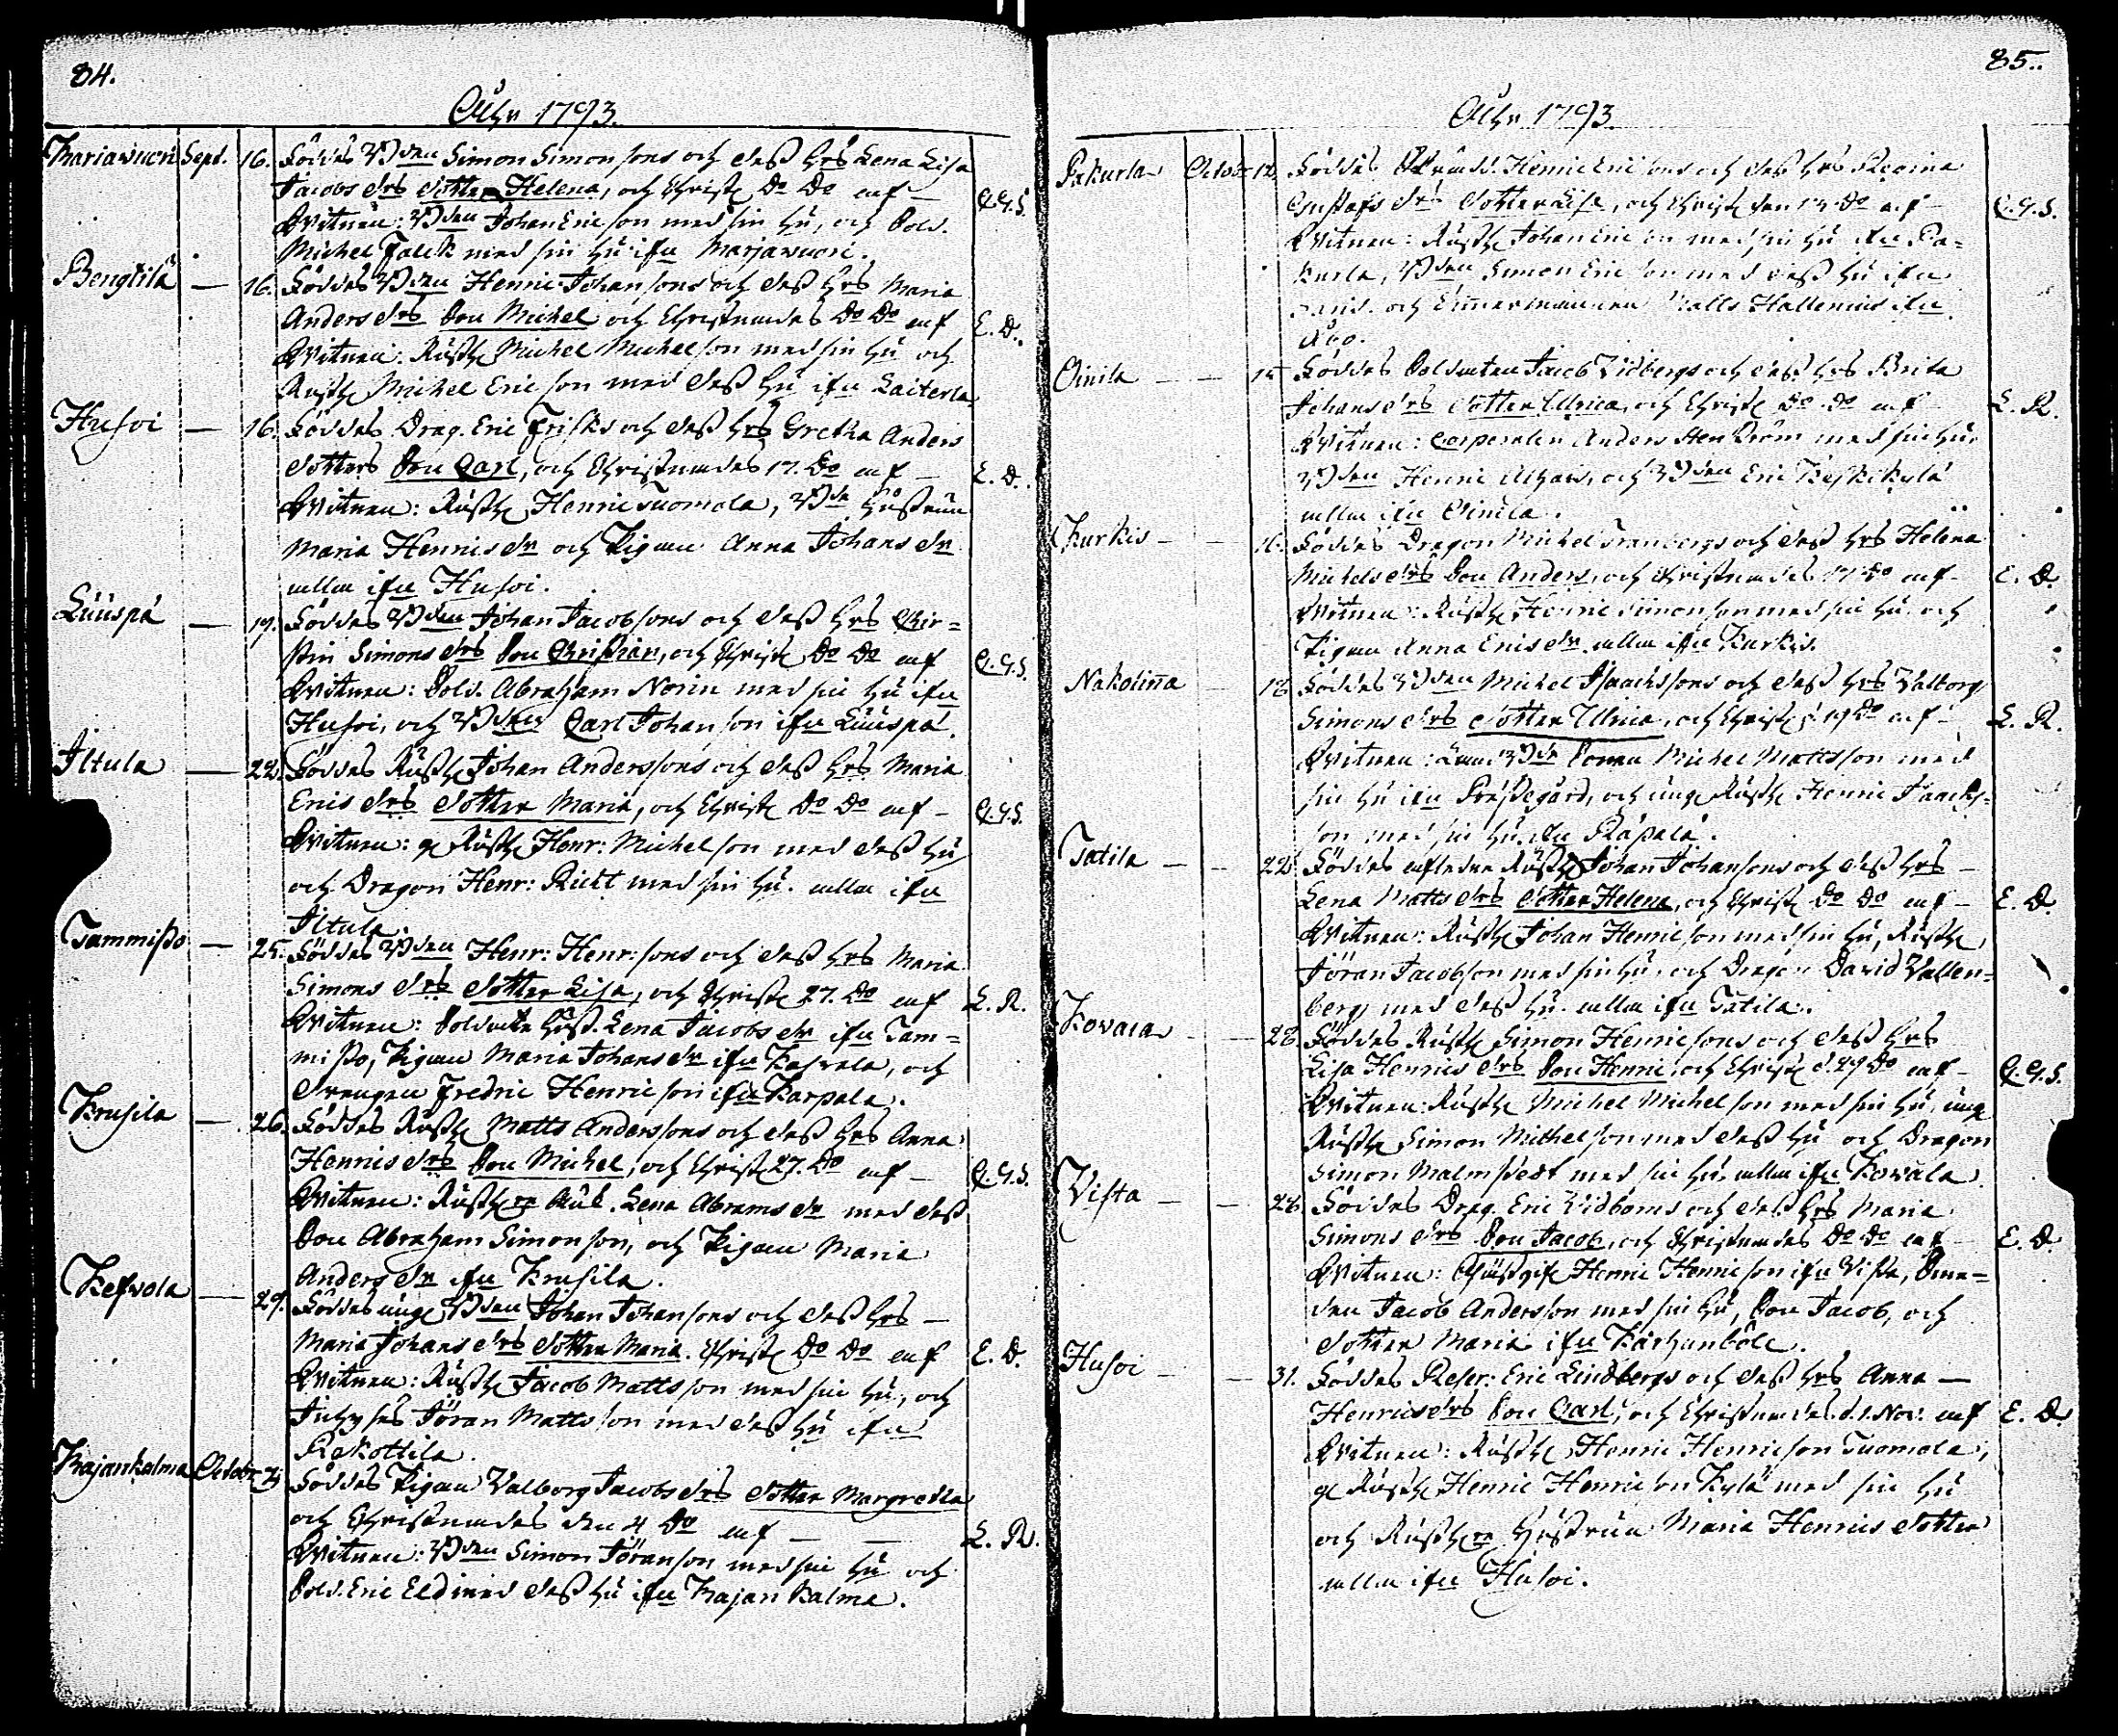 84.
Åhr 1793.
Mariawuori Sept. 16. Föddes Bden Simon Simonsons och dess hrs Lena Lisa
Jacobs drs dotter Helena, och Christ. Do Do af — C.G.S.
Wittnen: Bden Johan Ericson med sin hu, och Sold.
Michel Falck med sin hu ifrn Marjawuori.
Bengtilä — 16. Föddes Bden Henric Johansons och dess hrs Maria
Anders drs Son Michel och Christnades Do Do af E.D.
Wittnen: Rusth. Michel Michelson med sin hu och
Rusth. Michel Ericson med dess hu ifrn Laiterla
Husoi — 16. Föddes Drag. Eric Frisks och dess hrs Gretha Anders
dotters Son Carl, och Christnades 17. Do af — E.D.
Wittnen: Rusth. Henric Tuomola, Bde hustrun
Maria Henrics dr och Pigan Anna Johans dr
alla ifrn Husoi.
Luuspä — 19. Föddes Bden Johan Jacobsons och dess hrs Chir=
stin Simons drs Son Christian, och Christ. Do Do af C.G.S.
Wittnen: Sold. Abraham Norin med sin hu ifrn
Husoi, och Bden Carl Johanson ifrn Luuspä.
Iltula — 22. Föddes Rusth. Johan Anderssons och dess hrs Maria
Erics drs dotter Maria, och Christ. Do Do af — C.G.S.
Wittnen: g. Rusth. Henr: Michelson med dess hu
och Dragon Henr: Rickt med sin hu. alla ifrn
Iltula.
Tammisto — 25. Föddes Bden Henr: Henr:sons och dess hrs Maria
Simons drs dotter Lisa, och Christ. 27. Do af L.R.
Wittnen: Soldate hust. Lena Jacobs dr ifrn Tam=
misto, Pigan Maria Johans dr ifrn Kasvala, och
Drengen Fredric Henricson ifrn Karpala.
Krusila — 26. Föddes Rusth. Matts Anderssons och dess hrs Anna
Henrics drs Son Michel, och Christ. 27. Do af — C.G.S.
Wittnen: Rusth. Lena Abrams dr med dess
Son Abraham Simonson, och Pigan Maria
Anders dr ifrn Krusila.
Kefvola — 29. Föddes unge Bden Johan Johansons och dess hrs —
Maria Johans drs dotter Maria. Christ. Do Do af E.D.
Wittnen: Rusth. Jacob Mattsson med sin hu, och
Jöran Mattsson med dess hu ifrn
Rekottila.
Kajankalma Octobr. 3. Föddes Pigan Valborg Jacobs drs dotter Margretha
och Christnades den 4 Do af — L.R.
Wittnen: Bden Simon Jöranson med sin hu och
Sold. Eric Eld med dess hu ifrn Kajankalma.
85.
Åhr 1793
Pakurla Octobr. 12. Föddes Henric Ericsons och dess hrs Regina
Gustafs drs dotter Lisa, och Christ. den Do af — C.G.S.
Wittnen: Rusth. Johan Ericson med sin hu ifrn Pa=
kurla, Bden Simon Ericson med dess hu ifrn
och Timmermannen Matts Hallenius ifrn
Åbo.
Oinila — 15 Föddes Soldaten Jacob Vidbergs och dess hrs Brita
Johans drs dotter Ulrica, och Christ. Do Do af L.R.
Wittnen: Corporalen Anders Stenström med sin hu,
Bden Henric Alhais, och Bden Eric Keskikylä
alla ifrn Oinila.
Kurkis — 16. Föddes Dragon Michel Tranbergs och dess hrs Helena
Michels drs Son Anders, och Christnades 17 Do af — E.D.
Wittnen: Rusth. Henric Simonson med sin hu och
Pigan Anna Erics dr alla ifrn Kurkis.
Nakolinna — 18 Föddes Bden Michel Isaacssons och dess hrs Valborg
Simons drs dotter Ulrica, och Christ. d. 19 Do af — L.R.
Wittnen: Bde Sonen Michel Mattsson med
sin hu ifrn Prästegård, och unge Rusth. Henric Isaacs=
son med sin hu ifrn Räpälä.
Tatila — 22 Föddes Rusth. Johan Johansons och dess hrs —
Lena Matts drs dotter Helena, och Christ. Do Do af — E.D.
Wittnen: Rusth. Johan Henricson med sin hu, Rusth.
Jöran Jacobson med sin hu, och Dragon David Vallen=
berg med dess hu alla ifrn Tatila.
Kovala — 28. Föddes Rusth. Simon Henricsons och dess hrs
Lisa Henrics drs Son Henric, och Christ. d. 29 Do af — C.G.S.
Wittnen: Rusth. Michel Michelson med sin hu, unge
Rusth. Simon Michelson med dess hu och Dragon
Simon Malmstedt med sin hu, alla ifrn Kovala.
Vista — 28. Föddes Drag. Eric Vidboms och dess hrs Maria
Simons drs Son Jacob, och Christnades Do Do af — E.D.
Wittnen: Henric Henricson ifrn Vista,
Jacob Andersson med sin hu, Son Jacob, och
dotter Maria ifrn Karhunböle.
Husoi — 31. Föddes Reser: Eric Lindbergs och dess hrs Anna —
Henrics drs Son Carl, och Christnades d. 1. Nov. af E.D.
Wittnen: Rusth. Henric Henricson Tuomola,
g. Rusth. Henric Henricson Kylä med sin hu
och Rusth. Hustrun Maria Henrics dotter
alla ifrn Husoi.